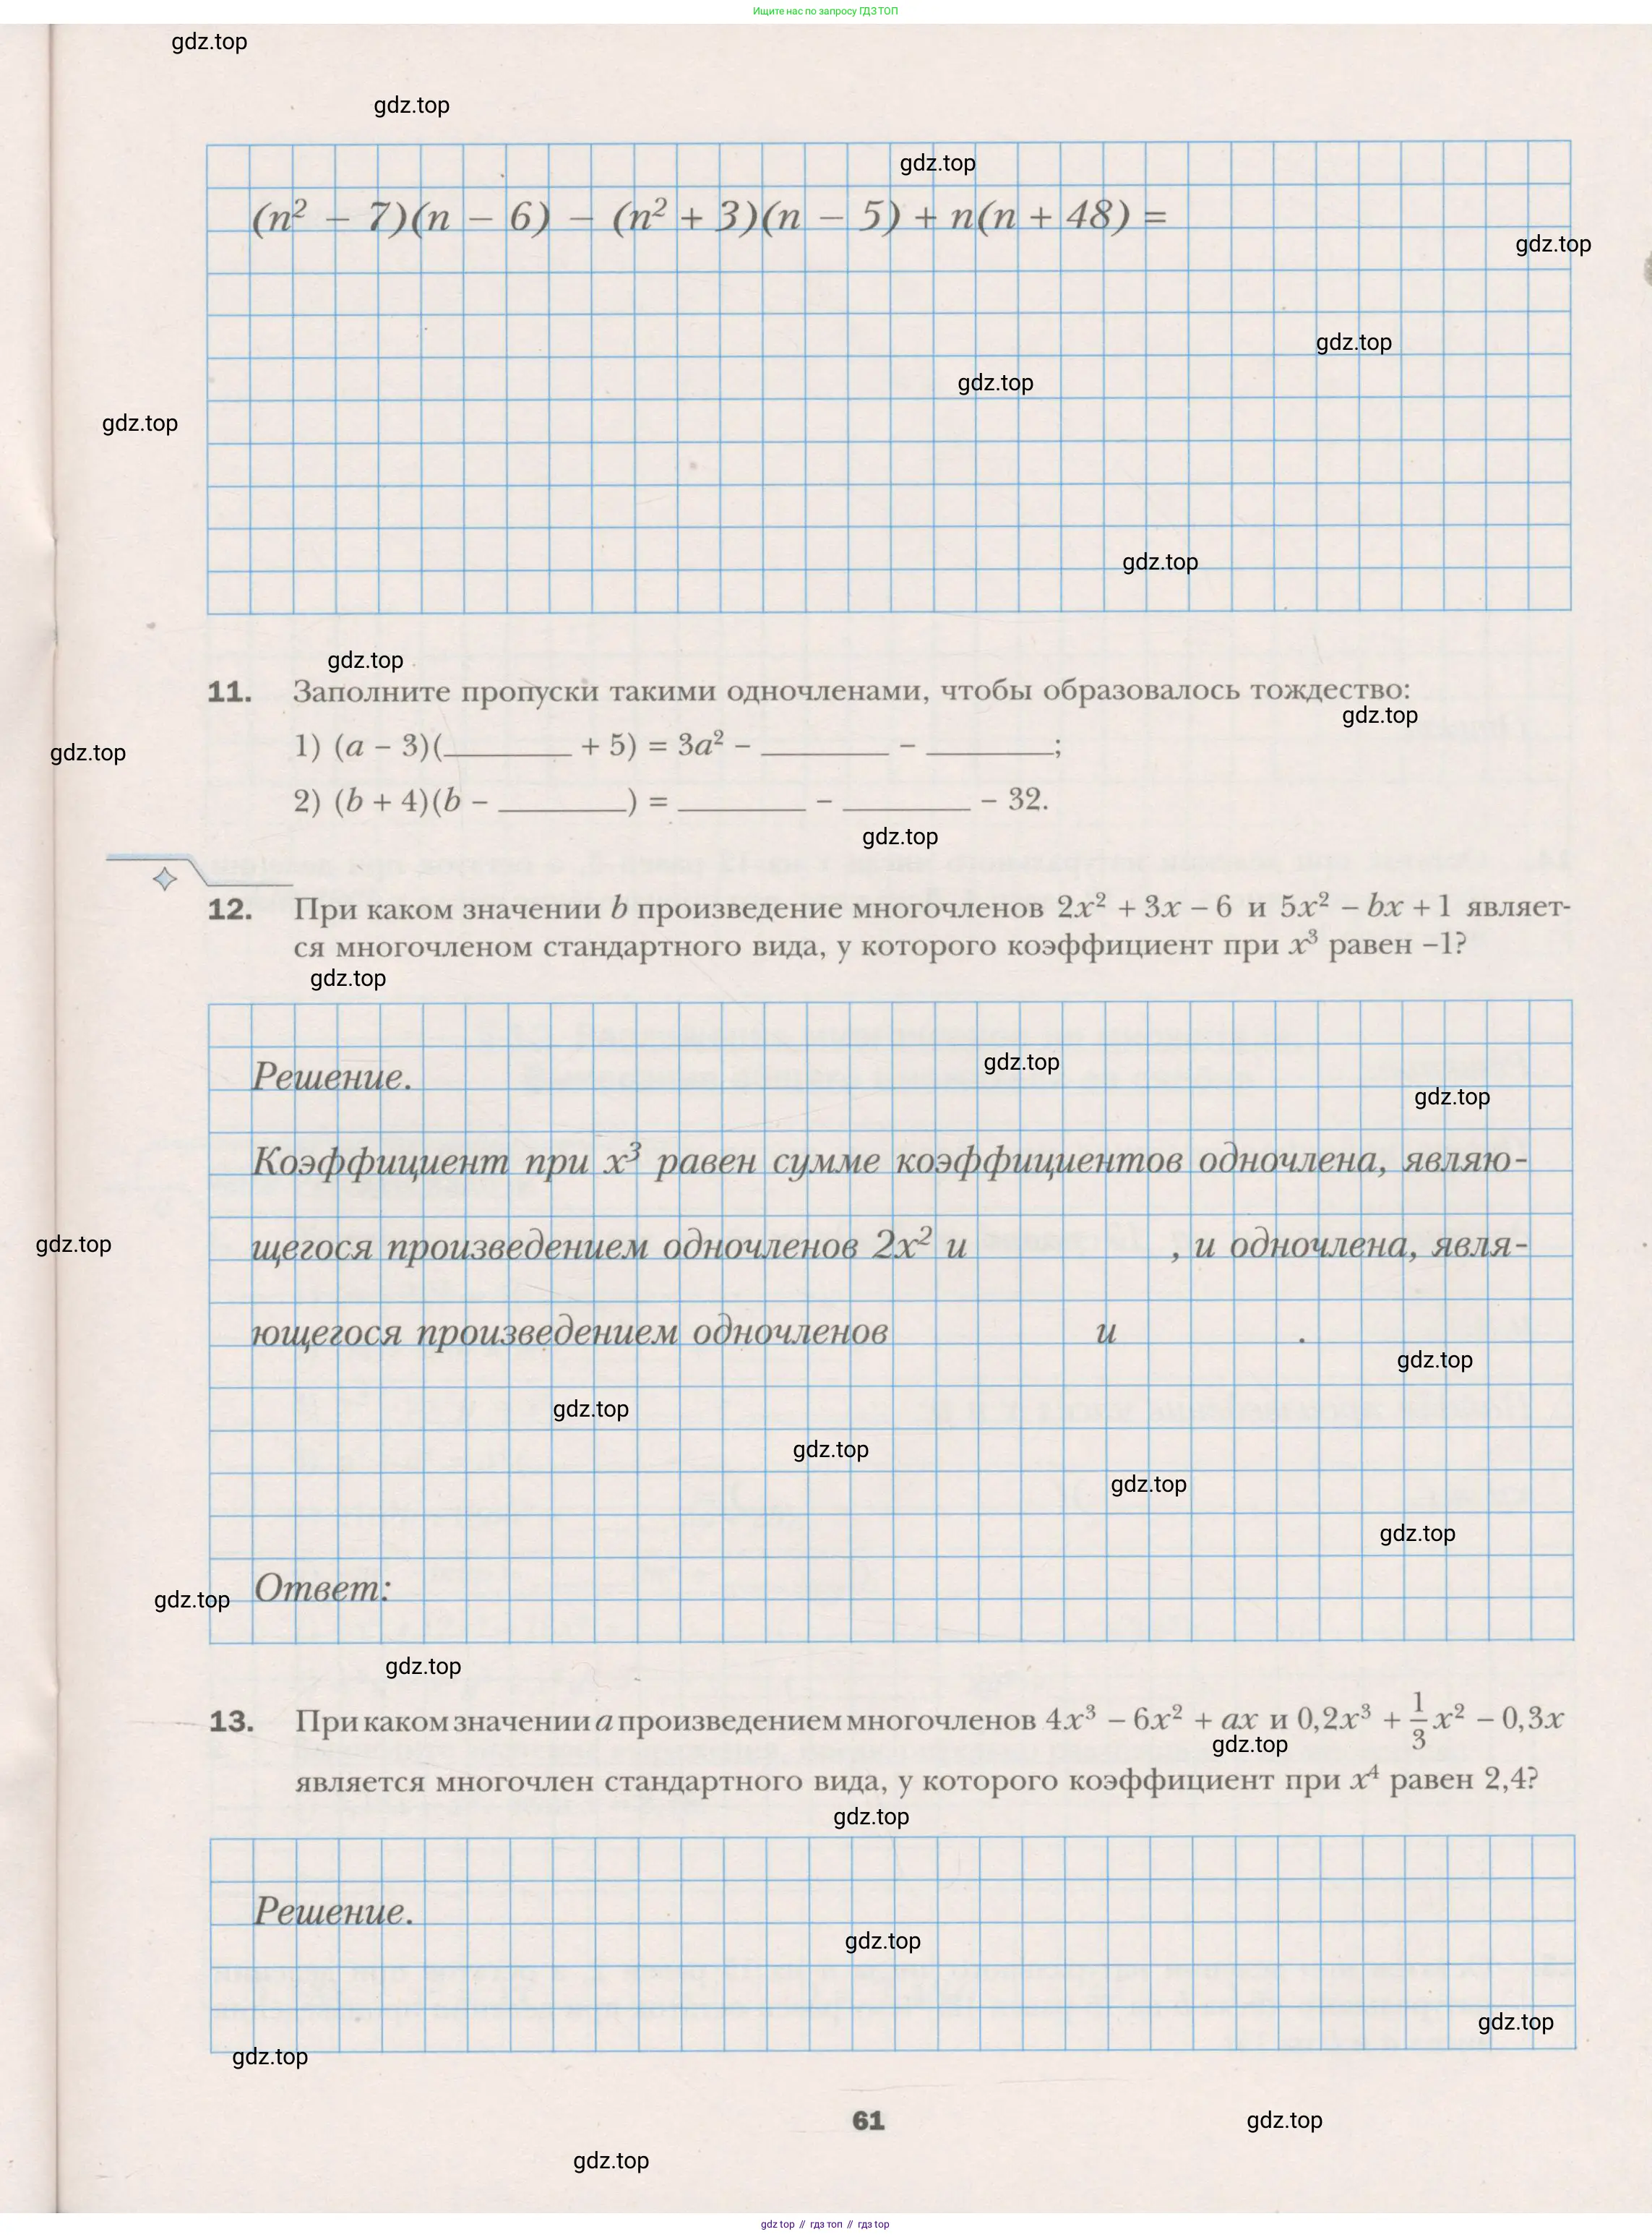 Ищите нас по запросу ГДЗ ТОП
gdz.top
gdz.top
gdz.top
(n² − 7)(n − 6) − (n² + 3)(n − 5) + n(n + 48) =
gdz.top
gdz.top
gdz.top
gdz.top
gdz.top
gdz.top
11. Заполните пропуски такими одночленами, чтобы образовалось тождество:
gdz.top
1) (a − 3)(________ + 5) = 3a² − ________ − ________;
gdz.top
2) (b + 4)(b − ________) = ________ − ________ − 32.
gdz.top
12. При каком значении b произведение многочленов 2x² + 3x − 6 и 5x² − bx + 1 являет-
ся многочленом стандартного вида, у которого коэффициент при x³ равен −1?
gdz.top
Решение.
gdz.top
gdz.top
Коэффициент при x³ равен сумме коэффициентов одночлена, являю-
щегося произведением одночленов 2x² и , и одночлена, явля-
gdz.top
ющегося произведением одночленов и .
gdz.top
gdz.top
gdz.top
gdz.top
gdz.top
Ответ:
gdz.top
gdz.top
13. При каком значении a произведением многочленов 4x³ − 6x² + ax и 0,2x³ + 1/3 x² − 0,3x
gdz.top
является многочлен стандартного вида, у которого коэффициент при x⁴ равен 2,4?
gdz.top
Решение.
gdz.top
gdz.top
gdz.top
61
gdz.top
gdz.top
gdz top // гдз топ // гдз top